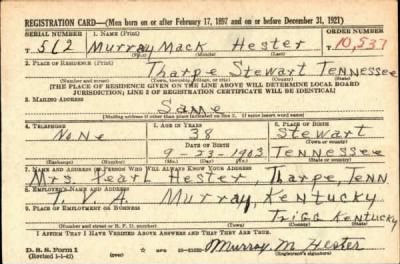 REGISTRATION CARD—(Men born on or after February 17, 1897 and on or before December 31, 1921)
SERIAL NUMBER 1. NAME (Print) ORDER NUMBER
T 562 Murray Mack Hester T 10,537
(First) (Middle) (Last)
2. PLACE OF RESIDENCE (Print)
Tharpe Stewart Tennessee
(Number and street) (Town, township, village, or city) (County) (State)
[THE PLACE OF RESIDENCE GIVEN ON THE LINE ABOVE WILL DETERMINE LOCAL BOARD
JURISDICTION; LINE 2 OF REGISTRATION CERTIFICATE WILL BE IDENTICAL]
3. MAILING ADDRESS
Same
[Mailing address if other than place indicated on line 2. If same insert word same]
4. TELEPHONE 5. AGE IN YEARS 6. PLACE OF BIRTH
None 38 Stewart
DATE OF BIRTH (Town or county)
9-23-1903 Tennessee
(Exchange) (Number) (Mo.) (Day) (Yr.) (State or country)
7. NAME AND ADDRESS OF PERSON WHO WILL ALWAYS KNOW YOUR ADDRESS
Mrs Pearl Hester, Tharpe, Tenn
8. EMPLOYER'S NAME AND ADDRESS
T. V. A. Murray, Kentucky
9. PLACE OF EMPLOYMENT OR BUSINESS
Trigg Kentucky
(Number and street or R. F. D. number) (Town) (County) (State)
I AFFIRM THAT I HAVE VERIFIED ABOVE ANSWERS AND THAT THEY ARE TRUE.
D. S. S. Form 1
(Revised 1-1-42) Murray M Hester
(Registrant's signature)